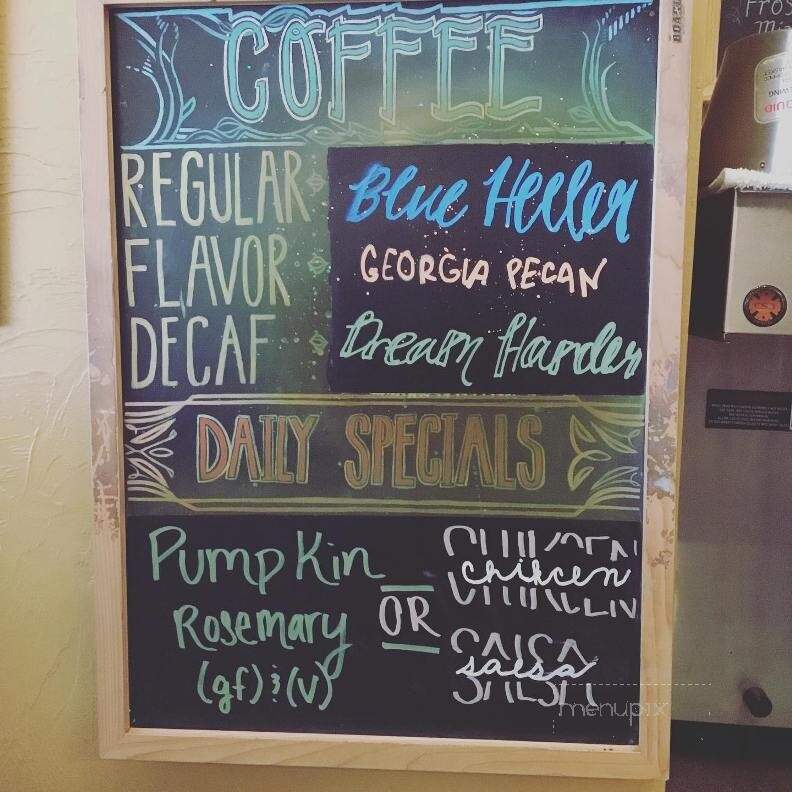 COFFEE
REGULAR Blue Heller
FLAVOR GEORGIA PECAN
DECAF Dream Harder
DAILY SPECIALS
PumpKin
Rosemary
(gf) & (v)
OR
CHICKEN
chicken
SALSA
salsa
menupix
BOARD
Fros